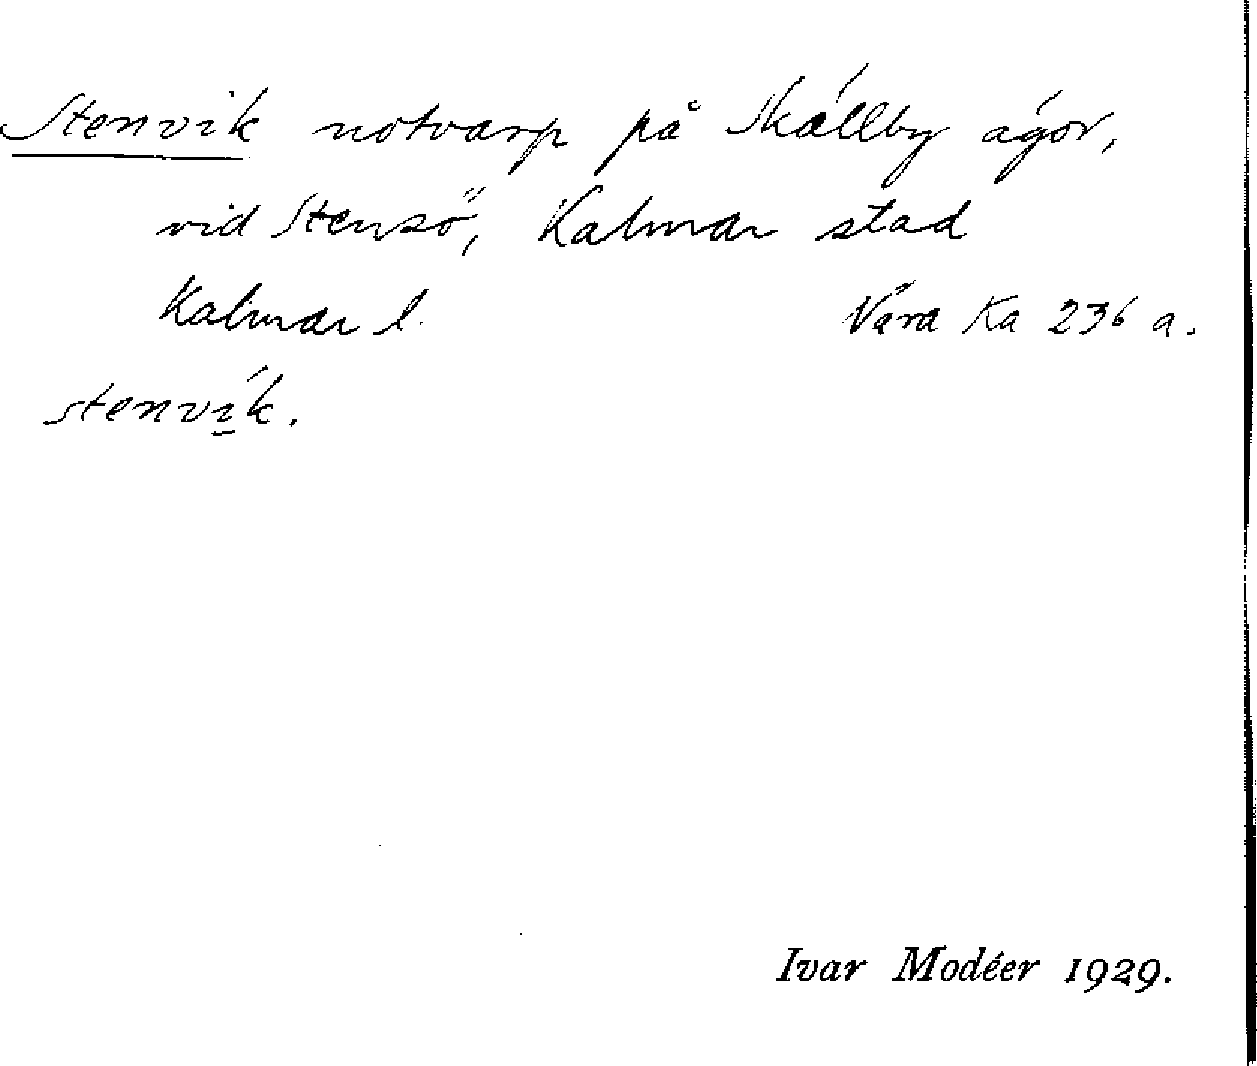 Stenvik notvarp på Skällby ägor,
vid Stensö, Kalmar stad
Kalmar l. Vära Ka 236 a.
stenvík.
Ivar Modéer 1929.